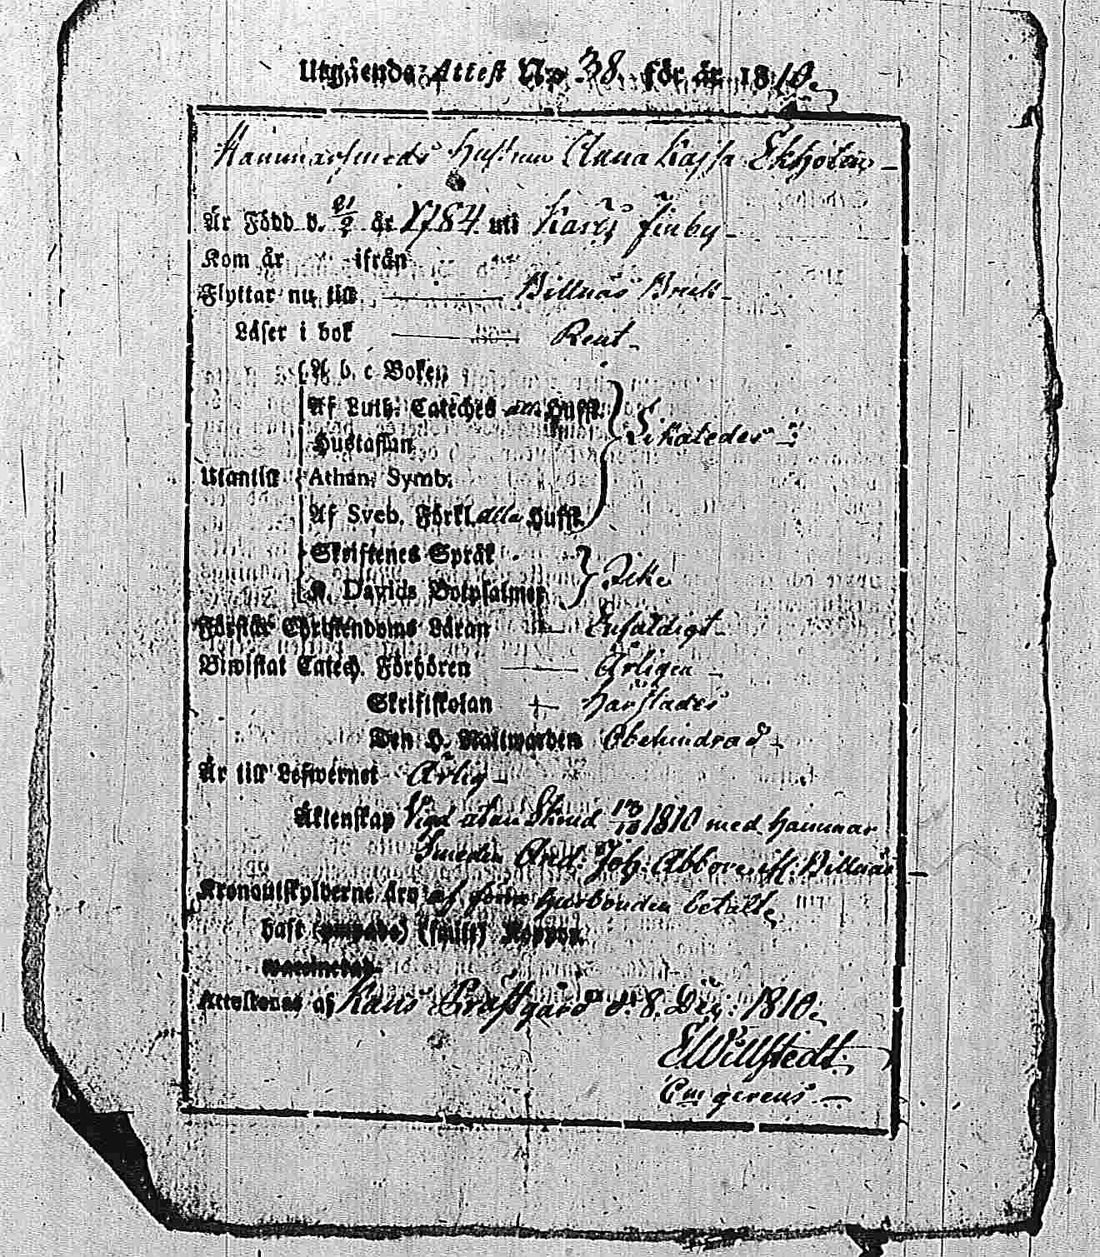 Utgående Attest No 38. för år 1810.
Hammarsmeds Hustrun Anna Kajsa Ekholm
Är Född d. 21/2 år 1784 uti Karis Finby
Kom år ifrån
Flyttar nu till Billnäs Bruk
Läser i bok Rent
A b c Boken
Af Luth. Cateches alla Hufst.
Hustaflan
Likaledes
Utantill Athan. Symb.
Af Sveb. Förkl. alla Hufst.
Skriftenes Språk
K. Davids Botpsalmer
Icke
Förstår Christendoms Läran Enfaldigt
Biwistat Catech. Förhören Årligen
Skriftskolan härstädes
Den H. Nattwarden Obehindrad
Är till Lefwernet Ärlig
Äktenskap Vigd utan Skrud 1810 med hammar
Smeden And. Joh. Abbore ifr. Billnäs
Kronoutskylderne äro af husbonden betalte
haft Koppor.
Attesteras af Karis Prästgård d. 8. Dec. 1810.
E Willstedt